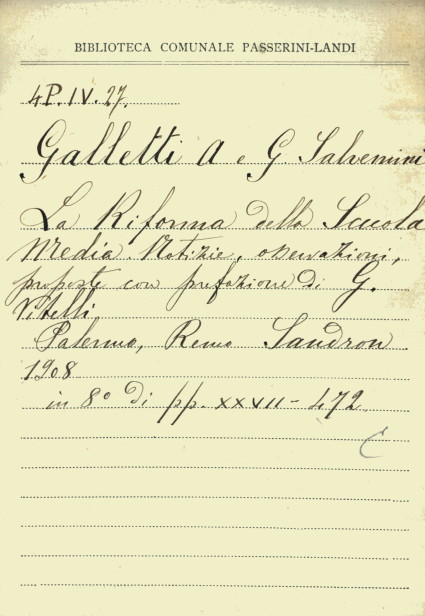 BIBLIOTECA COMUNALE PASSERINI-LANDI
4P.IV.27.
Galletti A e G Salvemini
La Riforma della Scuola
Media. Notizie, osservazioni,
proposte con prefazione di G.
Vitelli
Palermo, Remo Sandron
1908
in 8° di pp. XXVII - 472